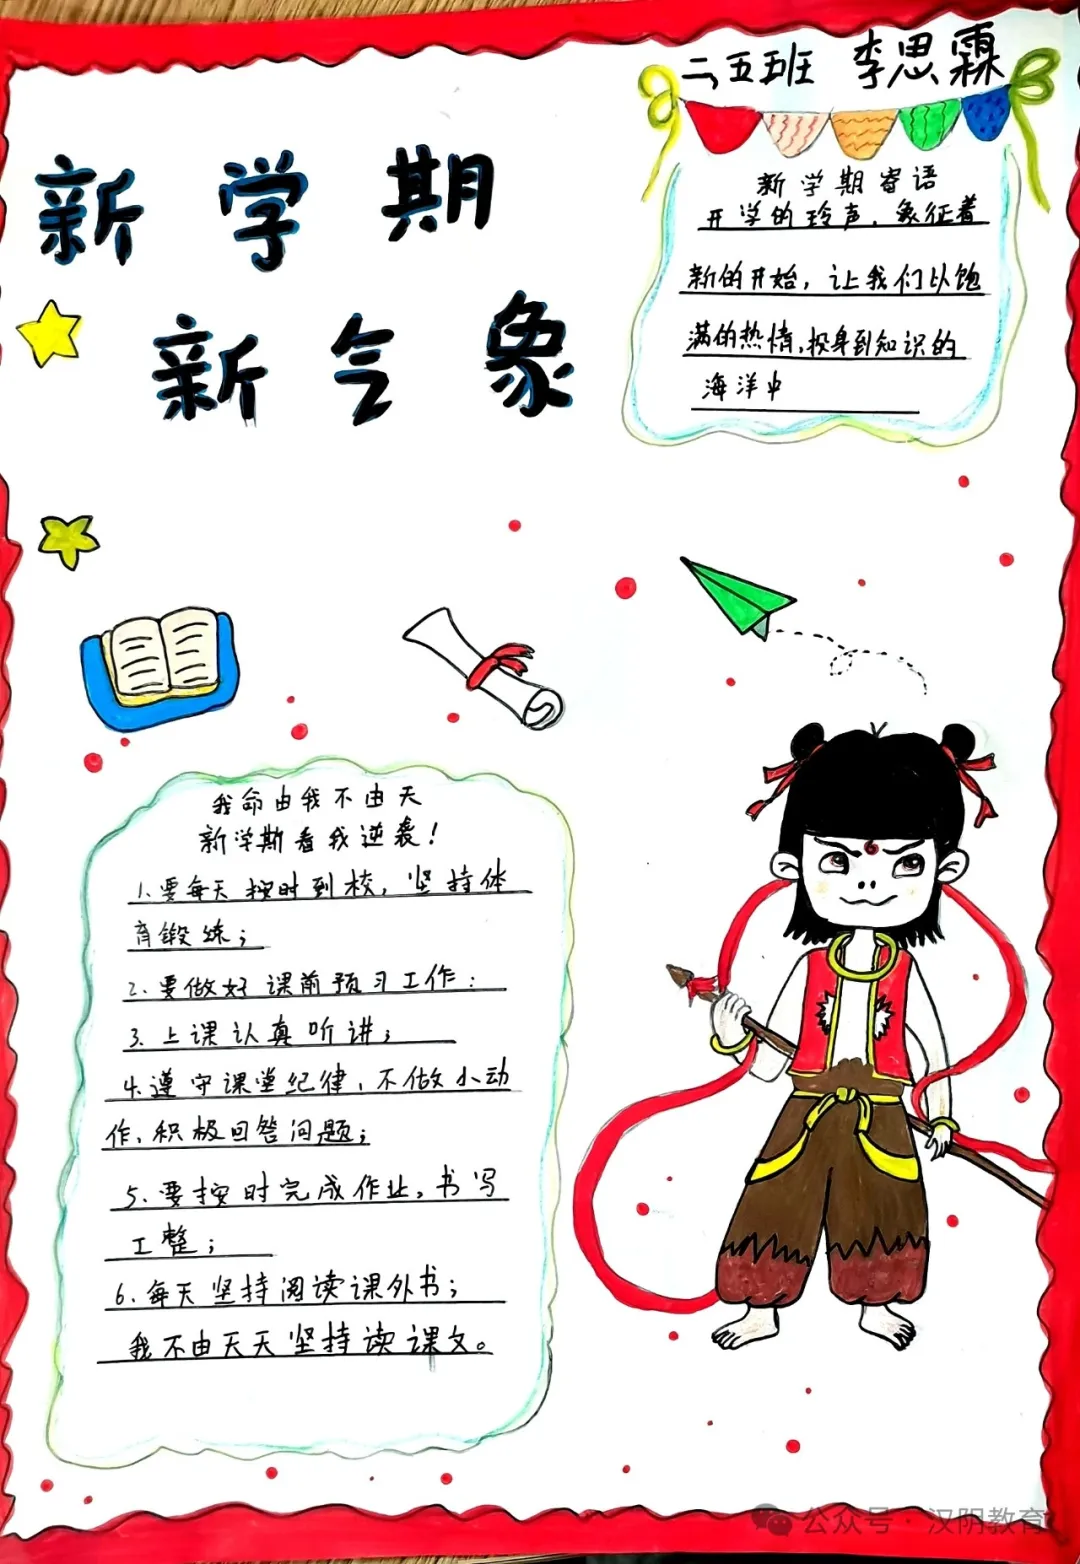 二,五班 李思霖
新学期
新气象
新学期寄语
开学的玲声，象征着
新的开始，让我们以饱
满的热情,投身到知识的
海洋中
我命由我不由天
新学期看我逆袭！
1.要每天按时到校，坚持体
育锻炼；
2.要做好课前预习工作：
3.上课认真听讲；
4.遵守课堂纪律，不做小动
作、积极回答问题；
5.要按时完成作业，书写
工整；
6.每天坚持阅读课外书；
我不由天天坚持读课文。
公众号·汉阴教育